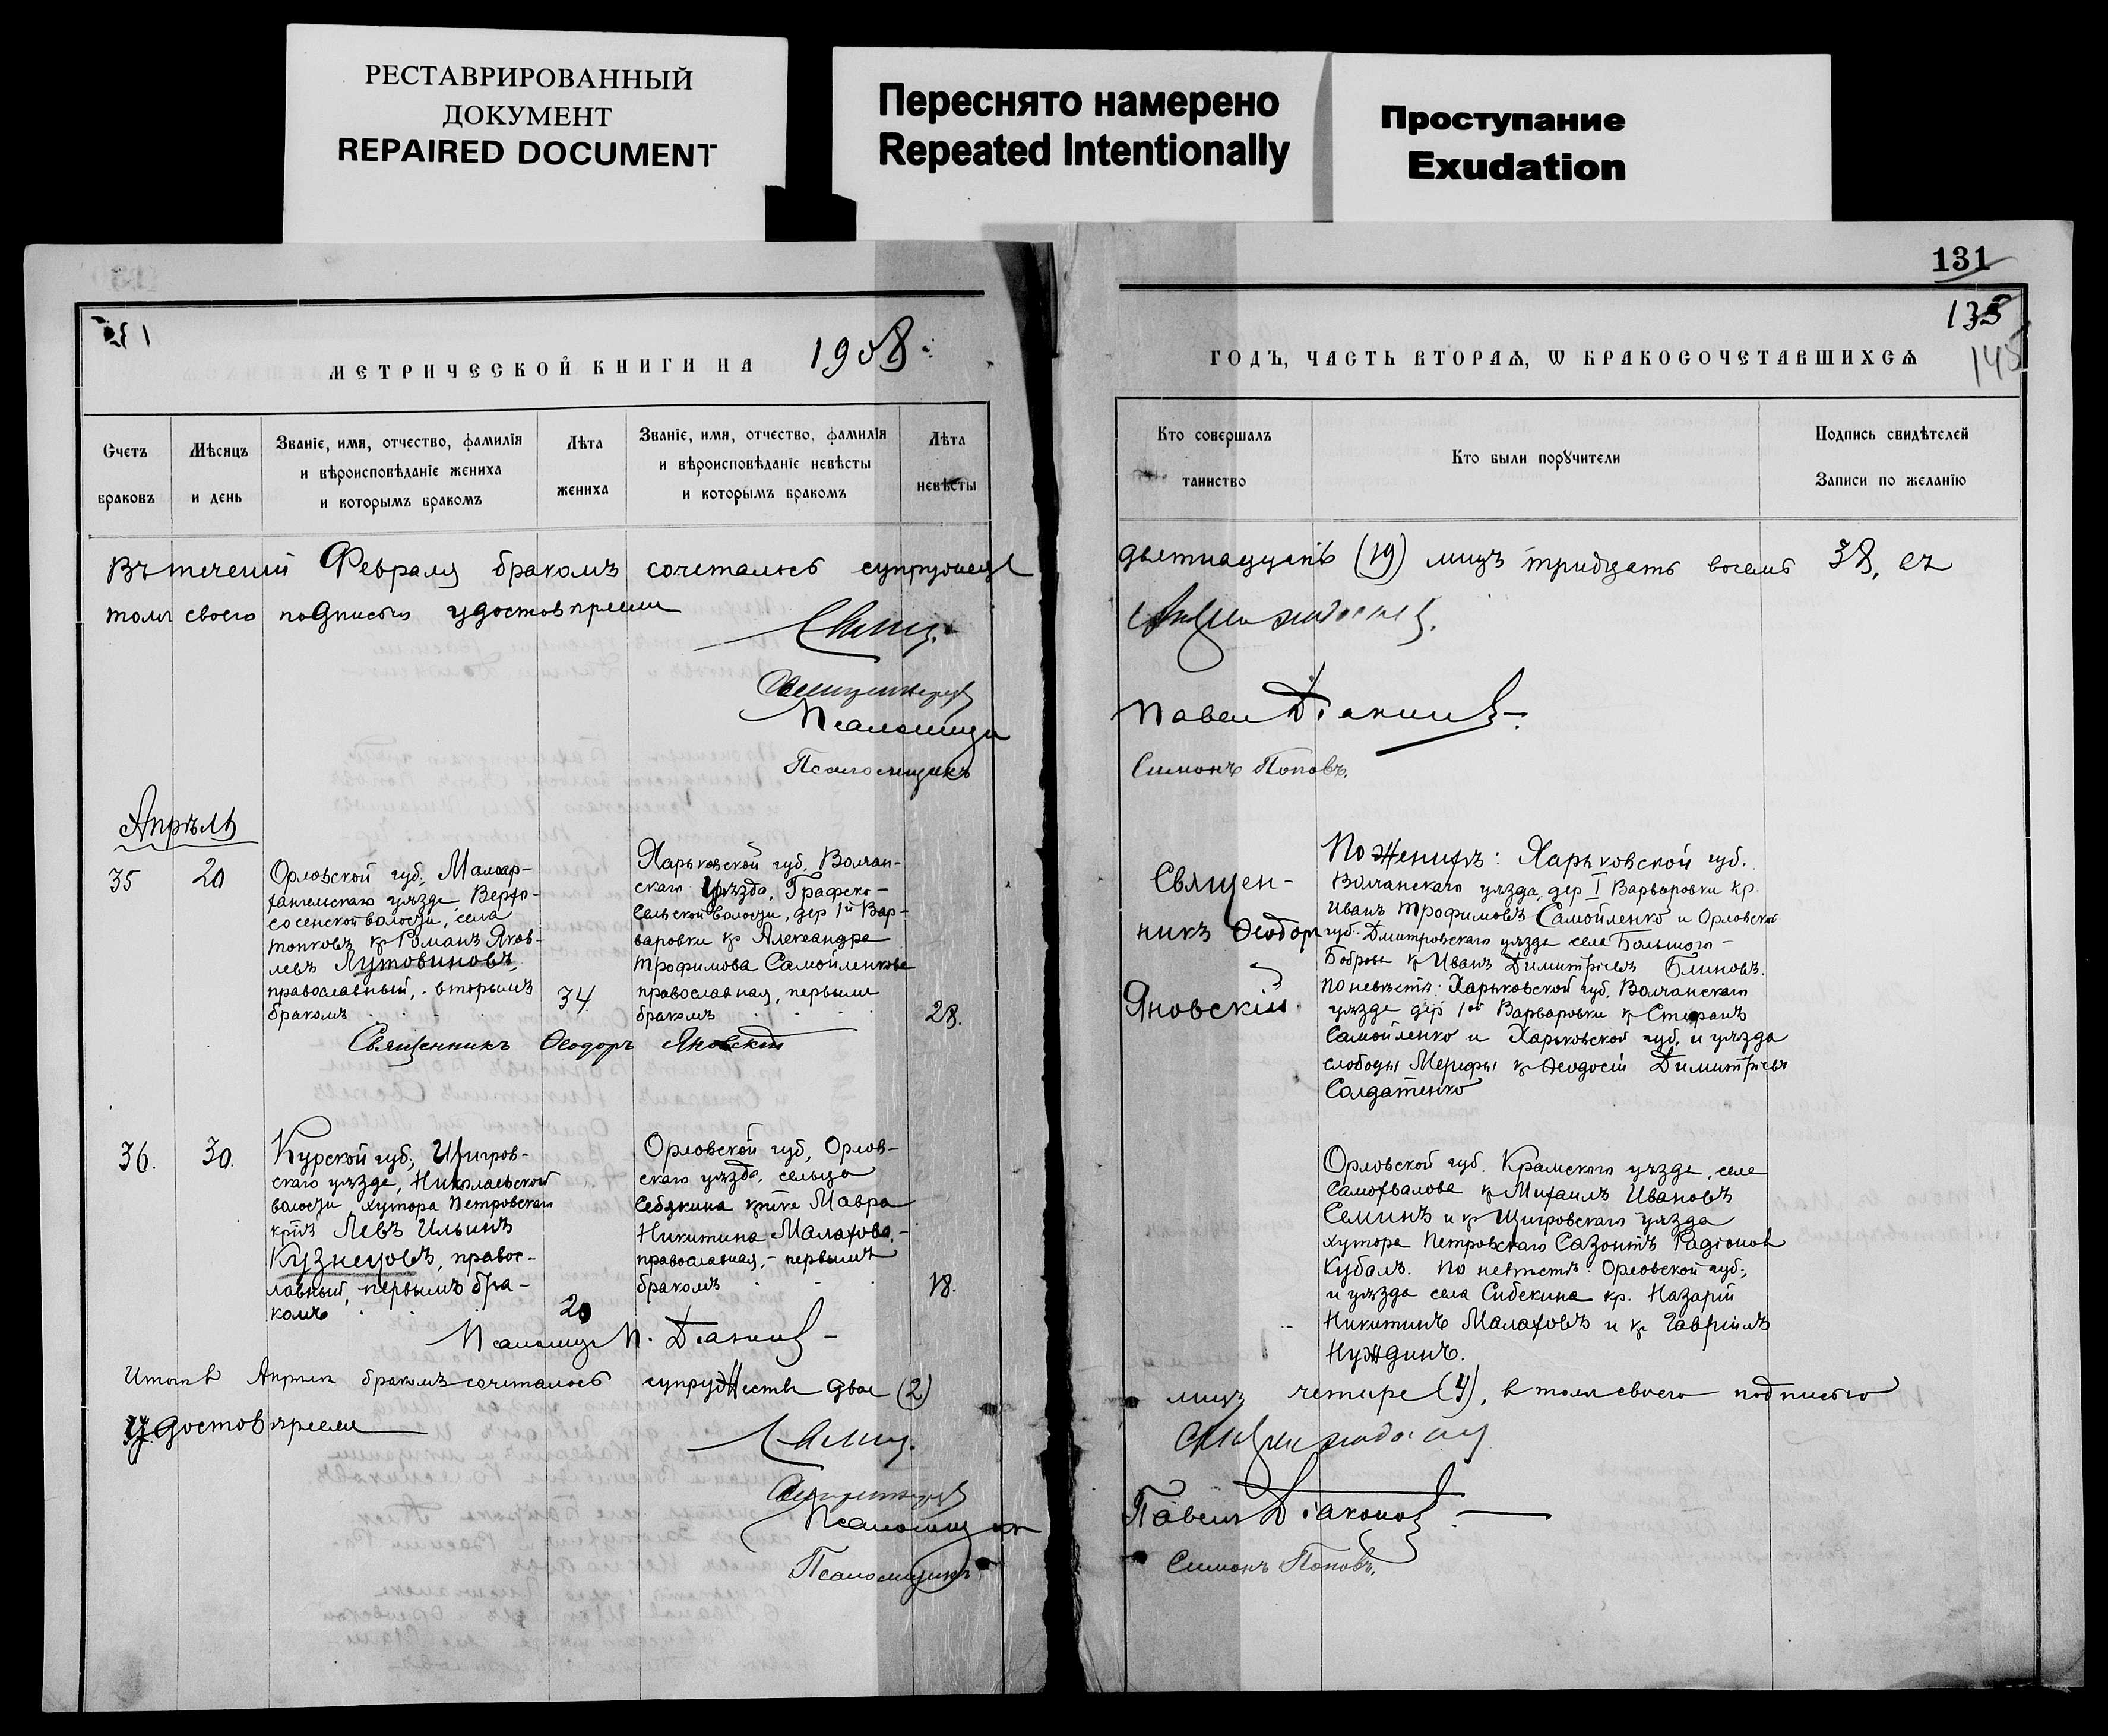 РЕСТАВРИРОВАННЫЙ
ДОКУМЕНТ
REPAIRED DOCUMENT
Переснято намерено
Repeated Intentionally
Проступание
Exudation
131
135
145
МЕТРИЧЕСКОЙ КНИГИ НА 1908
ГОДЪ, ЧАСТЬ ВТОРАѦ, Ѡ БРАКОСОЧЕТАВШИХСѦ
Счетъ
браковъ
Мѣсяцъ
и день
Званіе, имя, отчество, фамилія
и вѣроисповѣданіе жениха
и которымъ бракомъ
Лѣта
жениха
Званіе, имя, отчество, фамилія
и вѣроисповѣданіе невѣсты
и которымъ бракомъ
Лѣта
невѣсты
Кто совершалъ
таинство
Кто были порꙋчители
Подпись свидѣтелей
Записи по желанію
Въ теченіи Февраля бракомъ сочеталось
(19) лицъ тридцать восемь 38, въ
томъ своею подписью удостовѣряемъ
Павелъ
Псаломщикъ
Симонъ Поповъ.
Апрѣль
35
20
Орловской губ., Малоар-
хангельскаго уѣзда, Верхо-
сосенской волости, села
Топковъ кр Романъ Яков-
левъ Лутовиновъ,
православный, вторымъ
бракомъ
34.
Харьковской губ. Волчан-
скаго уѣзда, Графско-
сельской волости, дер 1й Вар-
варовки кр Александра
Трофимова Самойленкова
православная, первымъ
бракомъ
28.
Священникъ Ѳеодоръ Яновскій
Священ-
никъ Ѳеодоръ
Яновскій
По женихѣ: Харьковской губ.
Волчанскаго уѣзда, дер I Варваровки кр.
Иванъ Трофимовъ Самойленко и Орловской
губ. Дмитровскаго уѣзда села Большого-
Боброва кр Иванъ Димитріевъ Блиновъ.
По невѣстѣ: Харьковской губ. Волчанскаго
уѣзда дер 1ой Варваровки кр Стефанъ
Самойленко и Харьковской губ. и уѣзда
слободы Мерефы кр Ѳеодосій Димитріевъ
Солдатенко
36.
30.
Курской губ., Щигров-
скаго уѣзда, Николаевской
волости хутора Петровскаго
кр Левъ Ильинъ
Кузнецовъ, правос-
лавный, первымъ бра-
комъ
20
Орловской губ, Орлов-
скаго уѣзда, сельца
Себякина Мавра
Никитина Малахова,-
православная, - первымъ
бракомъ
18.
Псаломщ П.
Орловской губ. Кромскаго уѣзда, села
Самохвалова кр Михаилъ Ивановъ
Семинъ и кр Щигровскаго уѣзда
хутора Петровскаго Сазонтъ Радіоновъ
Кубалъ. По невѣстѣ: Орловской губ.,
и уѣзда села Сибекина кр. Назарій
Никитинъ Малаховъ и кр Гавріилъ
Нуждинъ.
Итого въ Апрѣлѣ бракомъ сочеталось супружествъ двое (2)
лицъ четыре (4), въ томъ своею подписью
удостовѣряемъ
Псаломщикъ
Павелъ Діаконовъ
Псаломщикъ
Симонъ Поповъ.